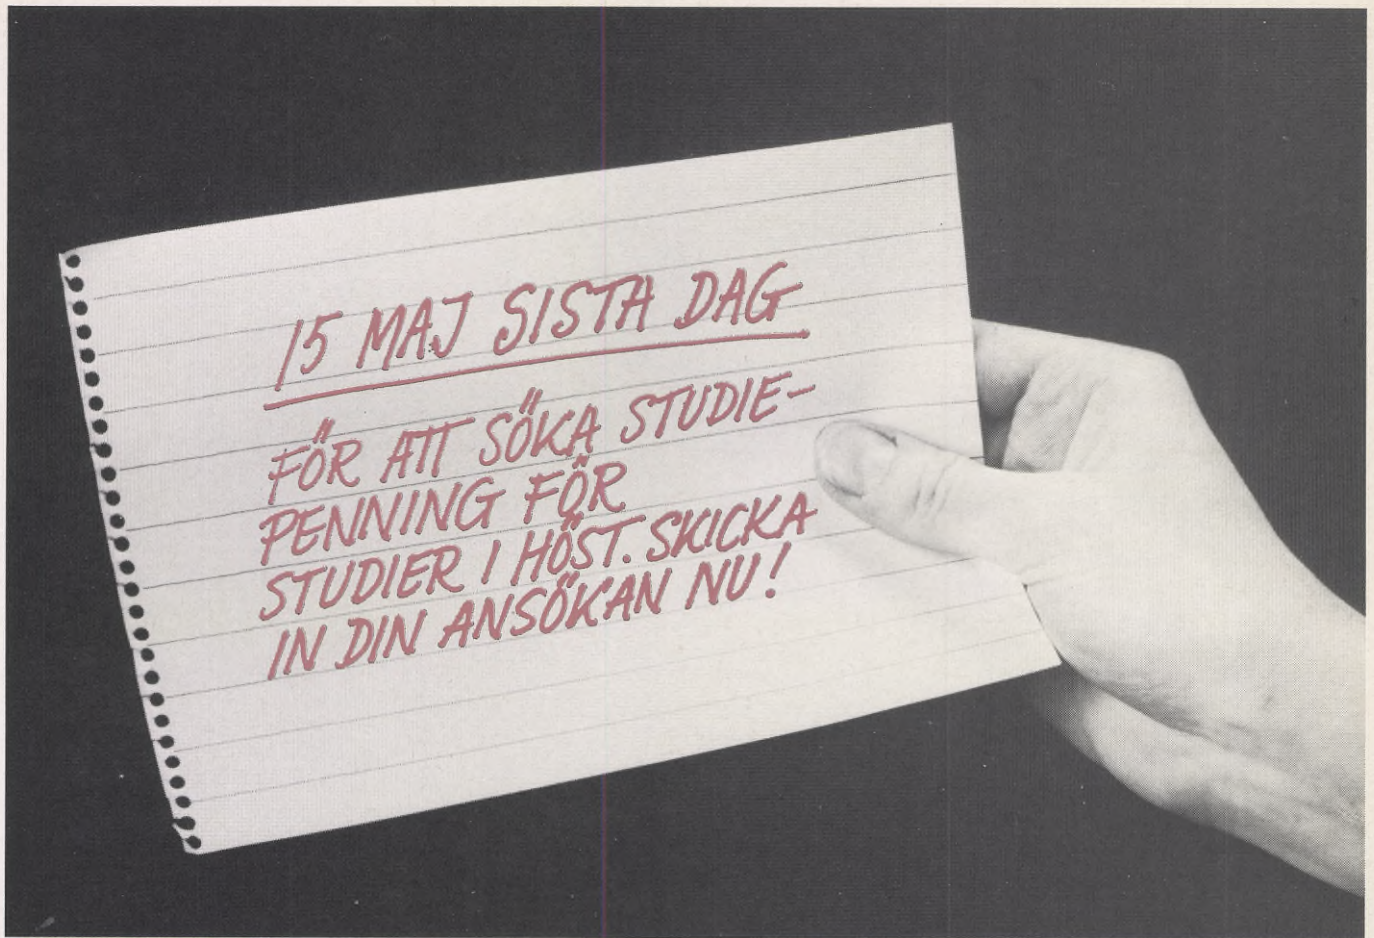 15 MAJ SISTA DAG
FÖR ATT SÖKA STUDIE-
PENNING FÖR
STUDIER I HÖST. SKICKA
IN DIN ANSÖKAN NU!